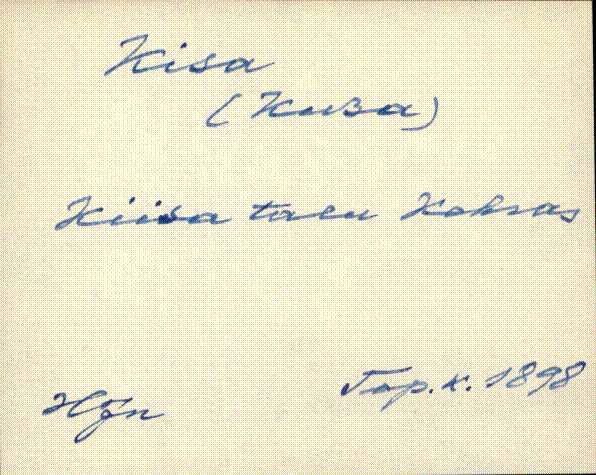 Kisa
(Киза)
Kiisa talu Kehras
HJn Top. k. 1898